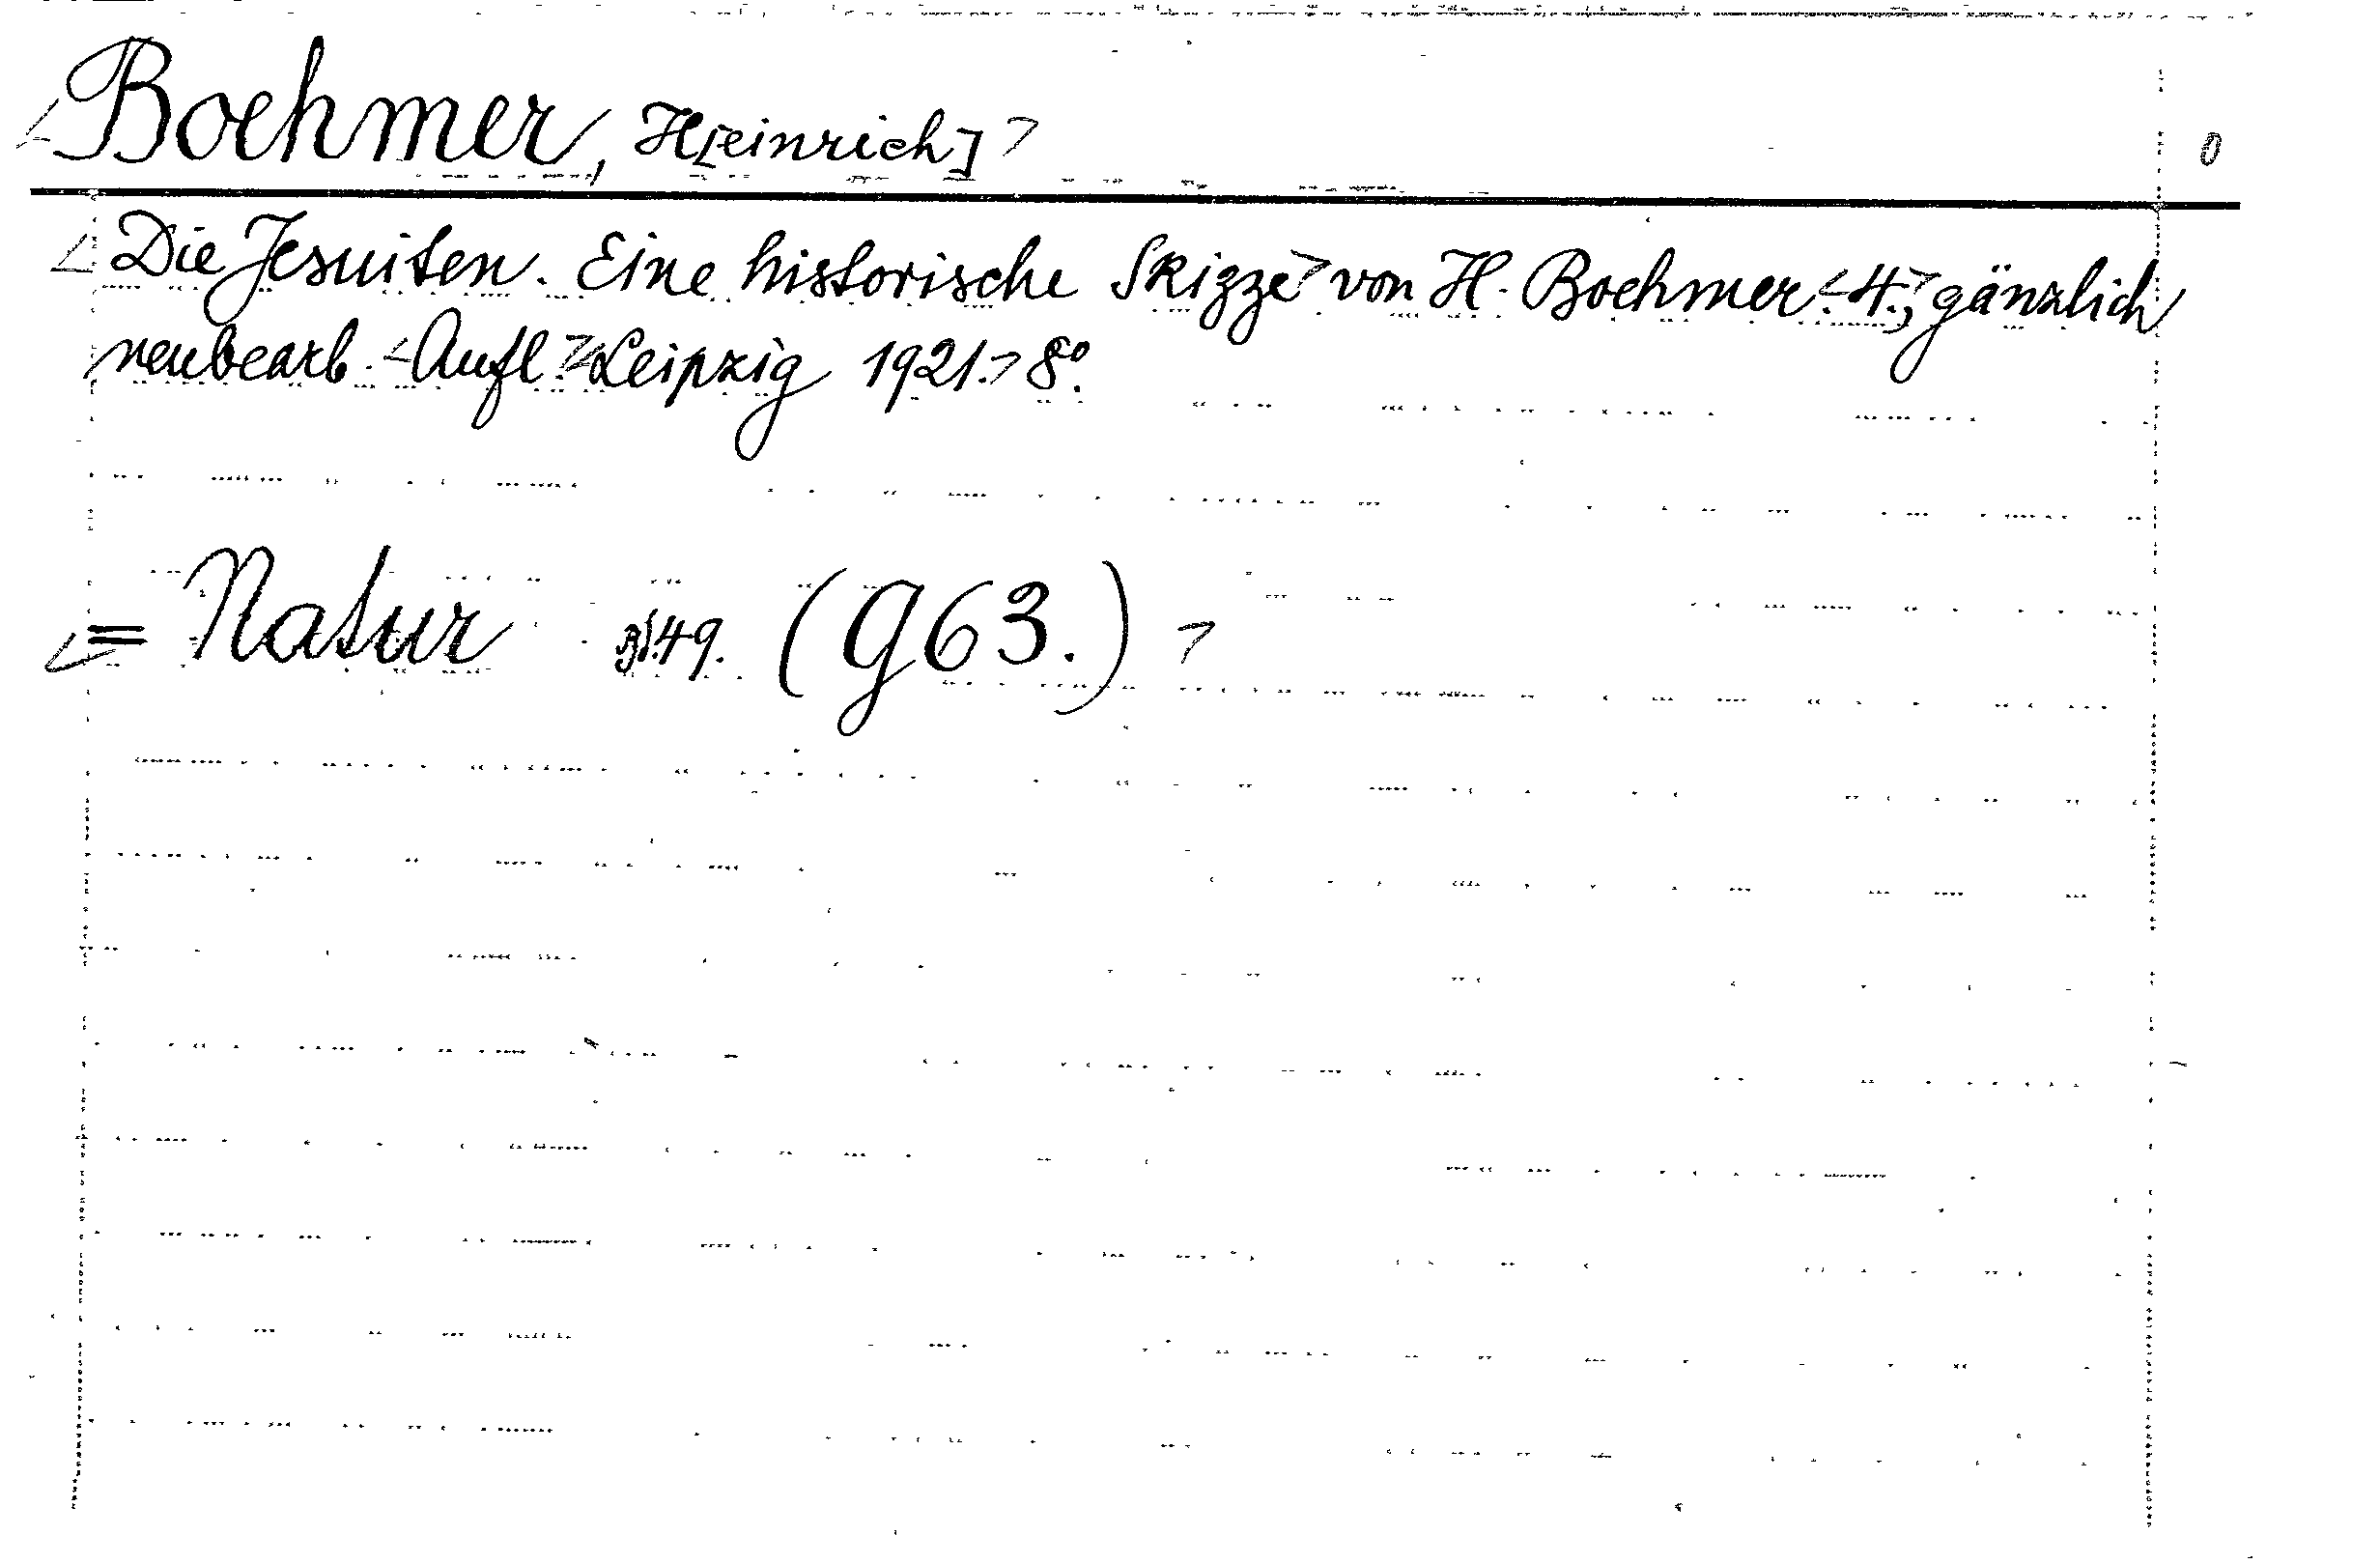 <Boehmer, H[einrich]> 0
<Die Jesuiten. Eine historische Skizze> von H. Boehmer. <4.,> gänzlich
neubearb. <Aufl.> <Leipzig 1921.> 8°.
<= Natur Bd.49. (g63.)>